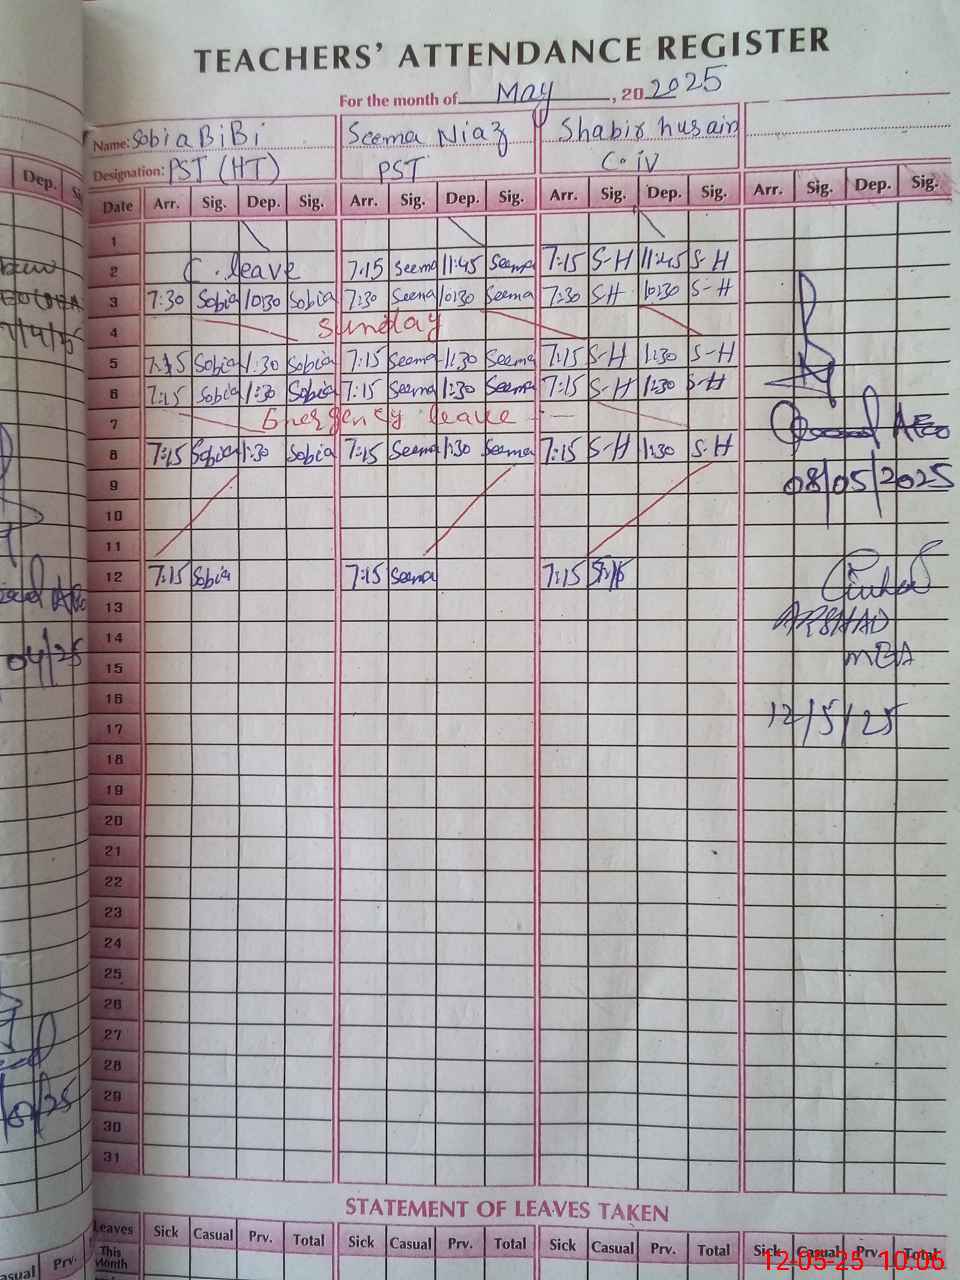 TEACHERS' ATTENDANCE REGISTER
For the month of May, 2025
Name: Sobia BiBi Seema Niaz Shabir husain
Designation: PST (HT) PST C-iv
Date Arr. Sig. Dep. Sig. Arr. Sig. Dep. Sig. Arr. Sig. Dep. Sig. Arr. Sig. Dep. Sig.
1
2 C. leave 7:15 Seema 11:45 Seema 7:15 S-H 11:45 S-H
3 7:30 Sobia 10:30 Sobia 7:30 Seema 10:30 Seema 7:30 S-H 10:30 S-H
4 Sunday
5 7:15 Sobia 1:30 Sobia 7:15 Seema 1:30 Seema 7:15 S-H 1:30 S-H
6 7:15 Sobia 1:30 Sobia 7:15 Seema 1:30 Seema 7:15 S-H 1:30 S-H
7 Emergency leave
8 7:15 Sobia 1:30 Sobia 7:15 Seema 1:30 Seema 7:15 S-H 1:30 S-H
AEO
9
08/05/2025
10
11
12 7:15 Sobia 7:15 Seema 7:15 S-H
13
ARSHAD
14
MEA
15
16
12/5/25
17
18
19
20
21
22
23
24
25
26
27
28
29
30
31
STATEMENT OF LEAVES TAKEN
Leaves Sick Casual Prv. Total Sick Casual Prv. Total Sick Casual Prv. Total Sick Casual Prv. Total
This Month
12-05-25 10:06
Dep.
04/25
Prv.